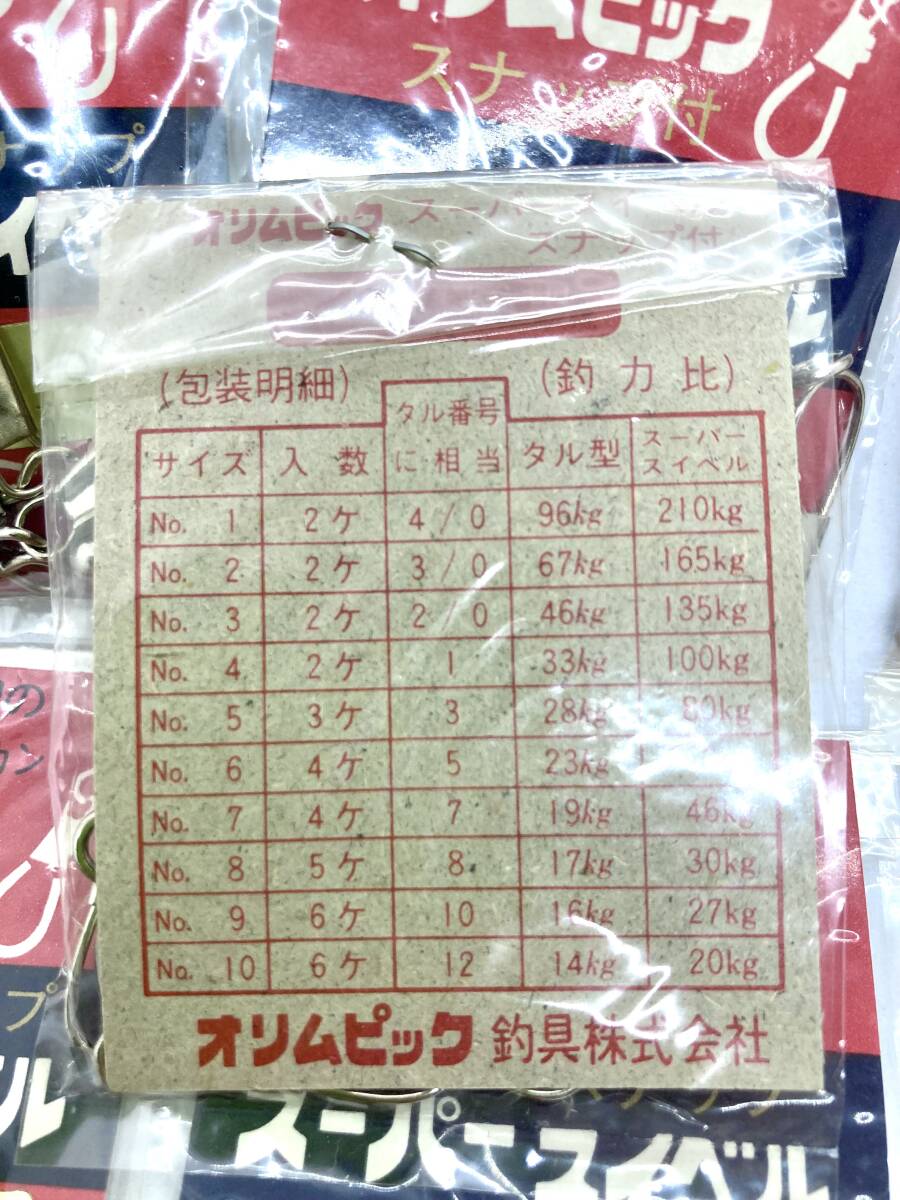 オリムピック
スナップ付
ナップ
オリムピック スーパースイベル
スナップ付
(包装明細) (釣力比)
サイズ 入数 タル番号に相当 タル型 スーパースイベル
No. 1 2ケ 4/0 96kg 210kg
No. 2 2ケ 3/0 67kg 165kg
No. 3 2ケ 2/0 46kg 135kg
No. 4 2ケ 1 33kg 100kg
No. 5 3ケ 3 28kg 80kg
No. 6 4ケ 5 23kg
No. 7 4ケ 7 19kg 46kg
No. 8 5ケ 8 17kg 30kg
No. 9 6ケ 10 16kg 27kg
No. 10 6ケ 12 14kg 20kg
オリムピック釣具株式会社
スーパースイベル